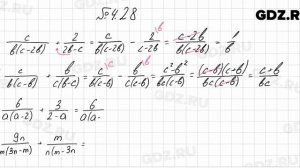 №428
GDZ.RU
c/b(c-2b) + 2/2b-c = c/b(c-2b) - 2/c-2b = c-2b/b(c-2b) = 1/b
c/b(c-b) + b/c(b-c) = c/b(c-b) - b/c(c-b) = c²-b²/bc(c-b) = (c-b)(c+b)/bc(c-b) = c+b/bc
6/a(a-2) + 3/2-a = 6/a(a-
9n/m(3n-m) + m/n(m-3n =
GDZ.RU